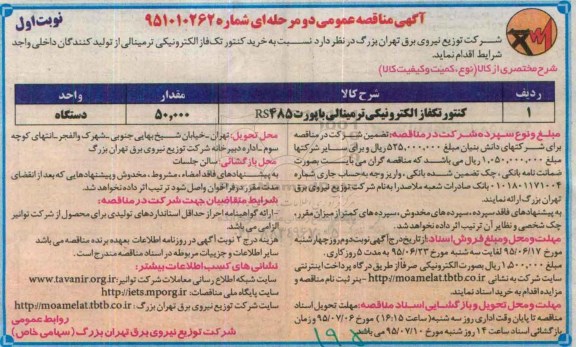 آگهی مناقصه عمومی دو مرحله ای شماره ۹۵۱۰۱۰۲۶۲
نوبت اول
شرکت توزیع نیروی برق تهران بزرگ در نظر دارد نسبت به خرید کنتور تک فاز الکترونیکی ترمینالی از تولید کنندگان داخلی واجد
شرایط اقدام نماید.
شرح مختصری از کالا (نوع، کمیت و کیفیت کالا)
ردیف شرح کالا مقدار واحد
۱ کنتور تکفاز الکترونیکی ترمینالی با پورت RS۴۸۵ ۵۰٫۰۰۰ دستگاه
مبلغ و نوع سپرده شرکت در مناقصه: تضمین شرکت در مناقصه
برای شرکتهای دانش بنیان مبلغ ۵۲۵,۰۰۰,۰۰۰ ریال و برای سایر شرکتها
مبلغ ۱,۰۵۰,۰۰۰,۰۰۰ ریال می باشد که مناقصه گران می بایست بصورت
ضمانت نامه بانکی، چک تضمین شده بانکی، واریز وجه به حساب جاری شماره
۰۱۰۱۸۰۱۱۷۱۰۰۴ بانک صادرات شعبه ملاصدرا به نام شرکت توزیع نیروی برق
تهران بزرگ ارائه نمایند.
به پیشنهادهای فاقد سپرده، سپرده های مخدوش، سپرده های کمتر از میزان مقرر،
چک شخصی و نظایر آن ترتیب اثر داده نخواهد شد.
مهلت و محل و مبلغ فروش اسناد: از تاریخ درج آگهی نوبت دوم روز چهارشنبه
مورخ ۹۵/۰۶/۱۷ لغایت سه شنبه مورخ ۹۵/۰۶/۲۳ به مدت ۵ روز کاری.
مبلغ ۱,۵۰۰,۰۰۰ ریال بصورت الکترونیکی صرفا از طریق درگاه پرداخت اینترنتی
سایت شرکت به نشانی http://moamelat.tbtb.co.ir - بنر ثبت نام مناقصه و
مزایده اقدام به خرید اسناد نمایند.
مهلت و محل تحویل و بازگشایی اسناد مناقصه: مهلت تحویل اسناد
مناقصه تا پایان وقت اداری روز سه شنبه (ساعت ۱۶:۱۵) مورخ ۹۵/۰۷/۰۶ و زمان
بازگشائی اسناد ساعت ۱۴ روز شنبه مورخ ۹۵/۰۷/۱۰ می باشد.
محل تحویل: تهران - خیابان شیخ بهایی جنوبی - شهرک والفجر - انتهای کوچه
سوم - اداره دبیرخانه شرکت توزیع نیروی برق تهران بزرگ
محل بازگشائی: سالن جلسات
به پیشنهادهای فاقد امضاء، مشروط، مخدوش و پیشنهادهایی که بعد از انقضای
مدت مقرر در فراخوان واصل شود ترتیب اثر داده نخواهد شد.
شرایط متقاضیان جهت شرکت در مناقصه:
- ارائه گواهینامه احراز حداقل استانداردهای تولیدی برای محصول از شرکت توانیر
الزامی می باشد.
هزینه درج ۲ نوبت آگهی در روزنامه اطلاعات به عهده برنده مناقصه می باشد
سایر اطلاعات و جزییات مربوطه در اسناد مناقصه مندرج است.
نشانی های کسب اطلاعات بیشتر:
سایت شبکه اطلاع رسانی معاملات شرکت توانیر: www.tavanir.org.ir
سایت پایگاه ملی مناقصات: http://iets.mporg.ir
سایت شرکت توزیع نیروی برق تهران بزرگ: http://moamelat.tbtb.co.ir
روابط عمومی
شرکت توزیع نیروی برق تهران بزرگ (سهامی خاص)